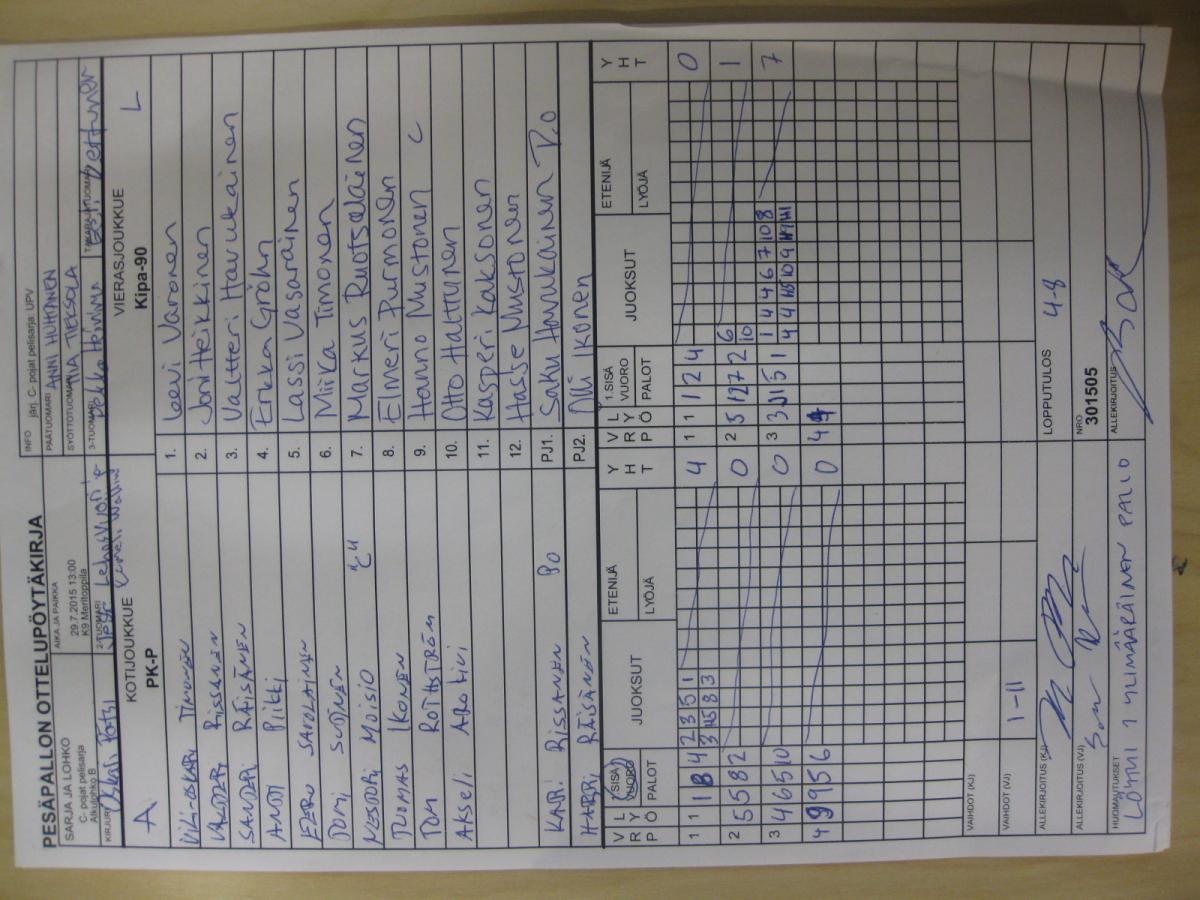 PESÄPALLON OTTELUPÖYTÄKIRJA
INFO järj. C- pojat pelisarja: UPV
SARJA JA LOHKO
C- pojat pelisarja
Alkulohko B
AIKA JA PAIKKA
29.7.2015 13:00
K9 Mentoppila
PÄÄTUOMARI ANNI HUHTANEN
SYÖTTÖTUOMARI TIA TIEKSOLA
KIRJURI
2-TUOMARI
3-TUOMARI Pekka Heinima
TAKARAJATUOMARI
A
KOTIJOUKKUE
PK-P
VIERASJOUKKUE
Kipa-90
L
VILI-OSKARI TIMONEN
1. Leevi Varonen
VALTTERI RISSANEN
2. Joni Heikkinen
SANTERI RÄISÄNEN
3. Valtteri Havukainen
ANTTI Piikki
4. Erkka Gröhn
EERO SAVOLAINEN
5. Lassi Vasarainen
TOMI SUTINEN
6. Miika Timonen
VESSERI MOISIO "C"
7. Markus Ruotsalainen
TUOMAS IKONEN
8. Elmeri Purmonen
TOM ROITTSTRÖM
9. Hanno Mustonen C
AKSELI AROKIVI
10. Otto Halttunen
11. Kasperi Kaksonen
12. Hasse Mustonen
KARI RISSANEN PO
PJ1. Saku Havukainen P.O
HARRI RÄISÄNEN
PJ2. Olli Ikonen
V R P L Y Ö 2.SISÄ VUORO PALOT JUOKSUT ETENIJÄ LYÖJÄ Y H T
V R P L Y Ö 1.SISÄ VUORO PALOT JUOKSUT ETENIJÄ LYÖJÄ Y H T
1 1 1 8 4 2 3 5 1 4
3 15 8 3
1 1 1 2 4 0
2 5 5 8 2 0
2 5 12 7 2 6 1
10
3 4 6 5 10 0
3 3 11 5 1 1 4 4 6 7 10 8 7
4 9 9 5 6 0
4 4
VAIHDOT (KJ)
VAIHDOT (VJ) 1-11
LOPPUTULOS 4-8
ALLEKIRJOITUS (KJ)
ALLEKIRJOITUS (VJ)
NRO
301505
HUOMAUTUKSET
LÖYTYI 1 YLIMÄÄRÄINEN PALLO
ALLEKIRJOITUS